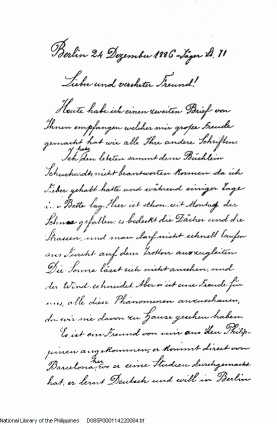 Berlin 24 Dezember 1886 Jäger St. 71
Lieber und verehrter Freund!
Heute habe ich einen zweiten Brief von
Ihnen empfangen welcher mir grosse Freude
gemacht hat wie alle Ihre andere Schriften
habe
Ich den letzten sammt dem Büchlein
Schuchardt nicht beantworten können da ich
Fieber gehabt hatte und während einiger Tage
i. Bette lag. Hier ist schon seit Montag der
Schnee gefallen: es bedeckt die Dächer und die
Strassen, und man darf nicht schnell laufen
aus Furcht auf dem Trottoir auszugleiten
Die Sonne lässt sich nicht ansehen, und
der Wind schneidet. Aber es ist eine Freude für
uns, alle diese Phänomenen anzuschauen,
da wir nie davon zu Hause gesehen haben.
Es ist ein Freund von mir aus den Philip-
pinen angekommen; er kommt direct von
Barcelona, wo er seine Studien durchgemacht
hat, er lernt Deutsch und will in Berlin
National Library of the Philippines D08SR00011422000041tif